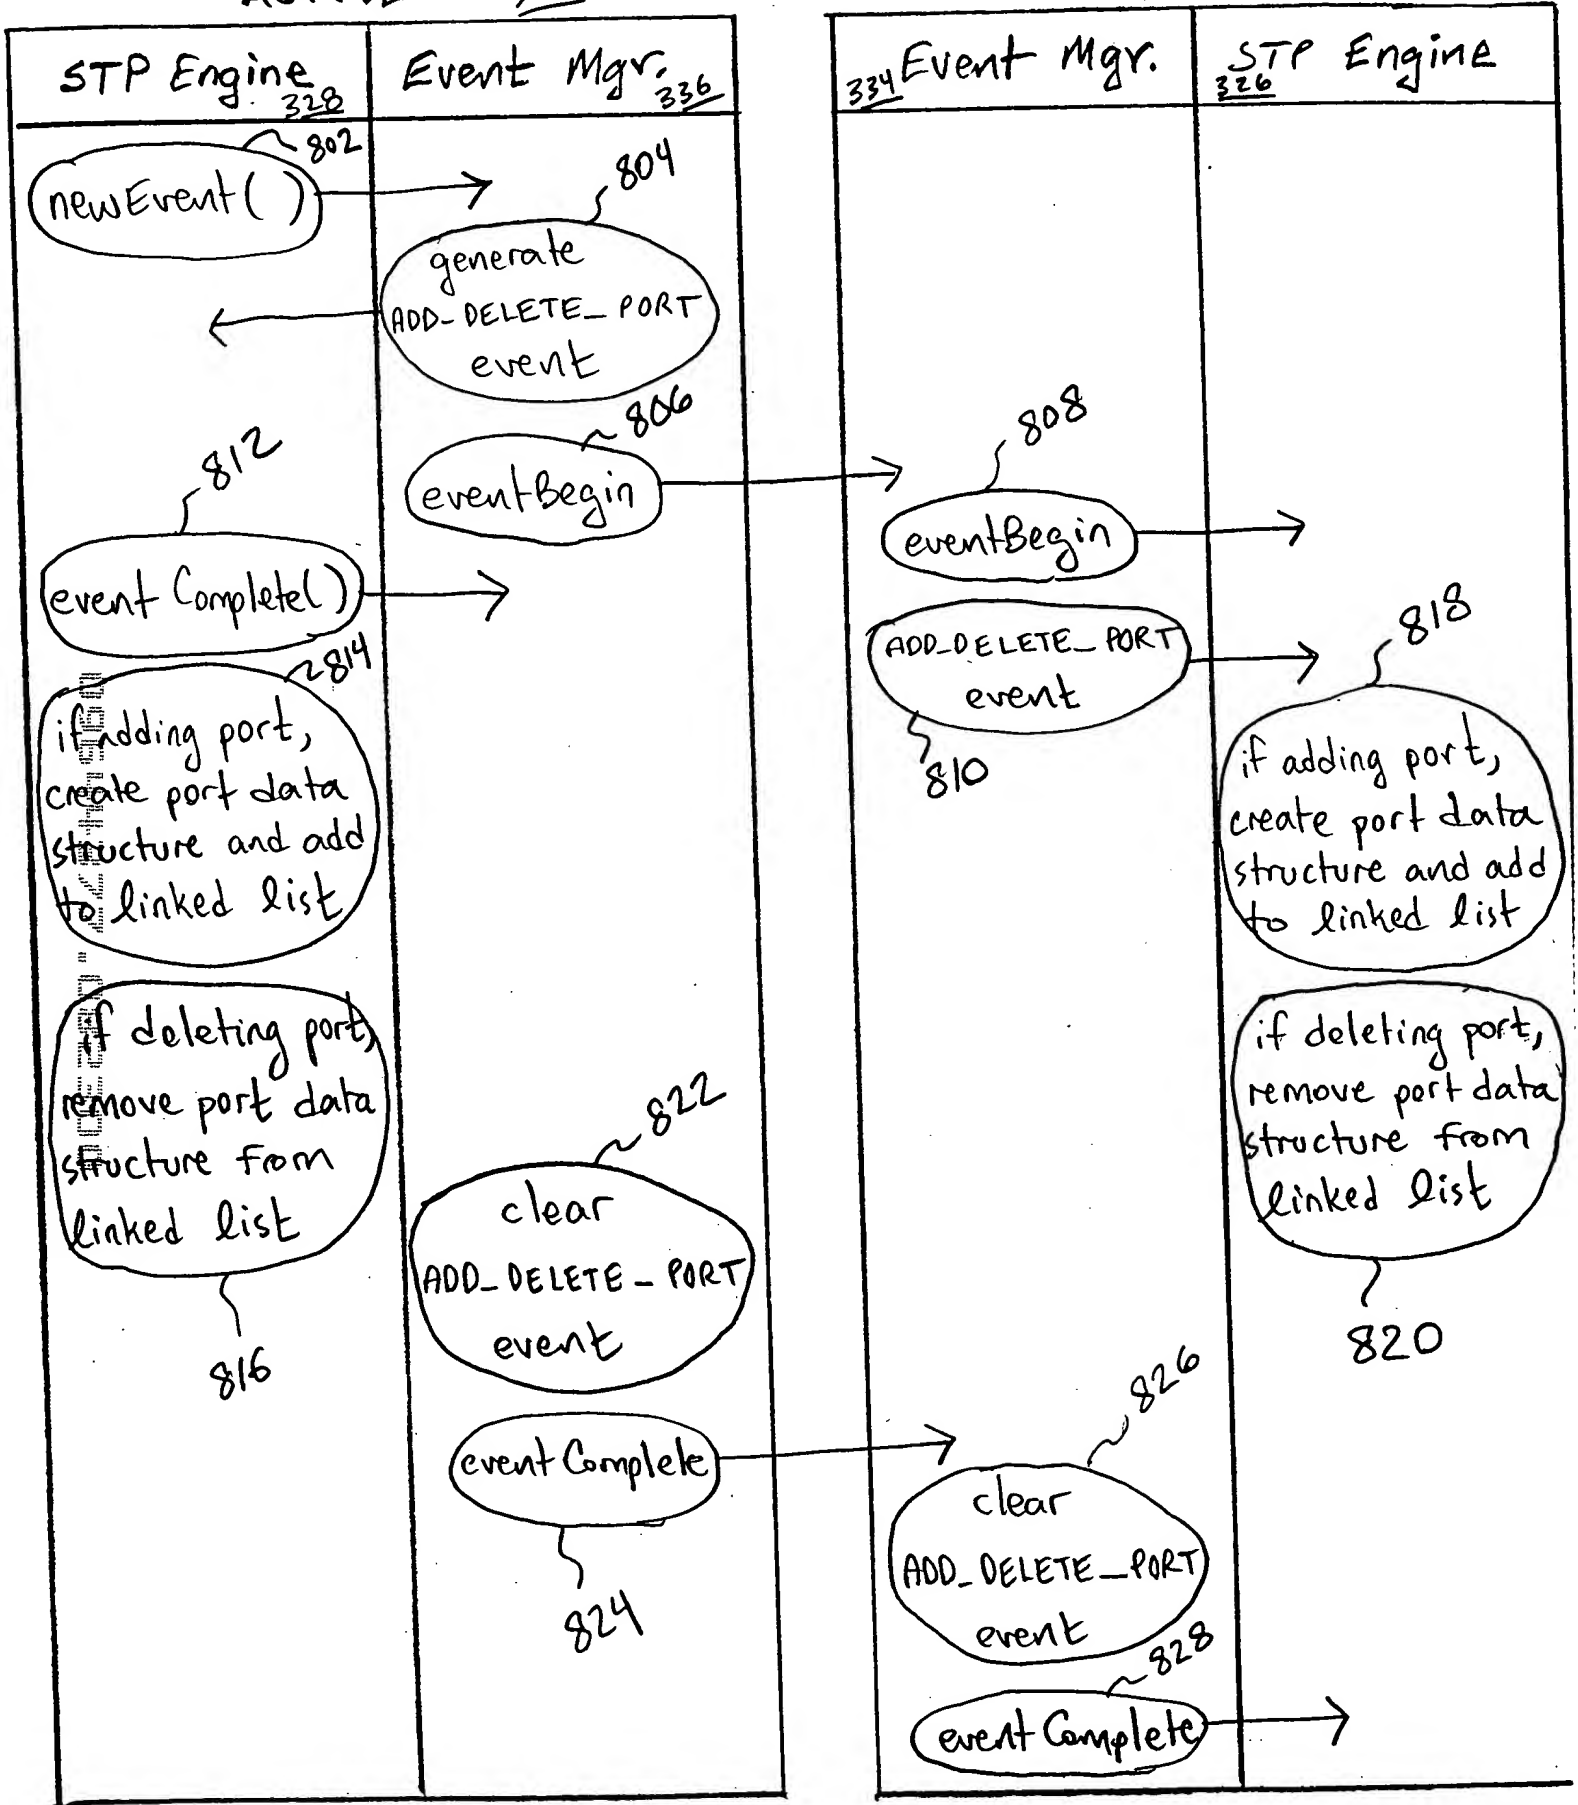 STP Engine
328
Event Mgr.
336
334
Event Mgr.
STP Engine
326
802
newEvent( )
804
generate
ADD_DELETE_PORT
event
806
eventBegin
808
eventBegin
812
eventComplete( )
ADD_DELETE_PORT
event
810
814
if adding port,
create port data
structure and add
to linked list
818
if adding port,
create port data
structure and add
to linked list
if deleting port,
remove port data
structure from
linked list
816
if deleting port,
remove port data
structure from
linked list
820
822
clear
ADD_DELETE_PORT
event
eventComplete
824
826
clear
ADD_DELETE_PORT
event
828
eventComplete